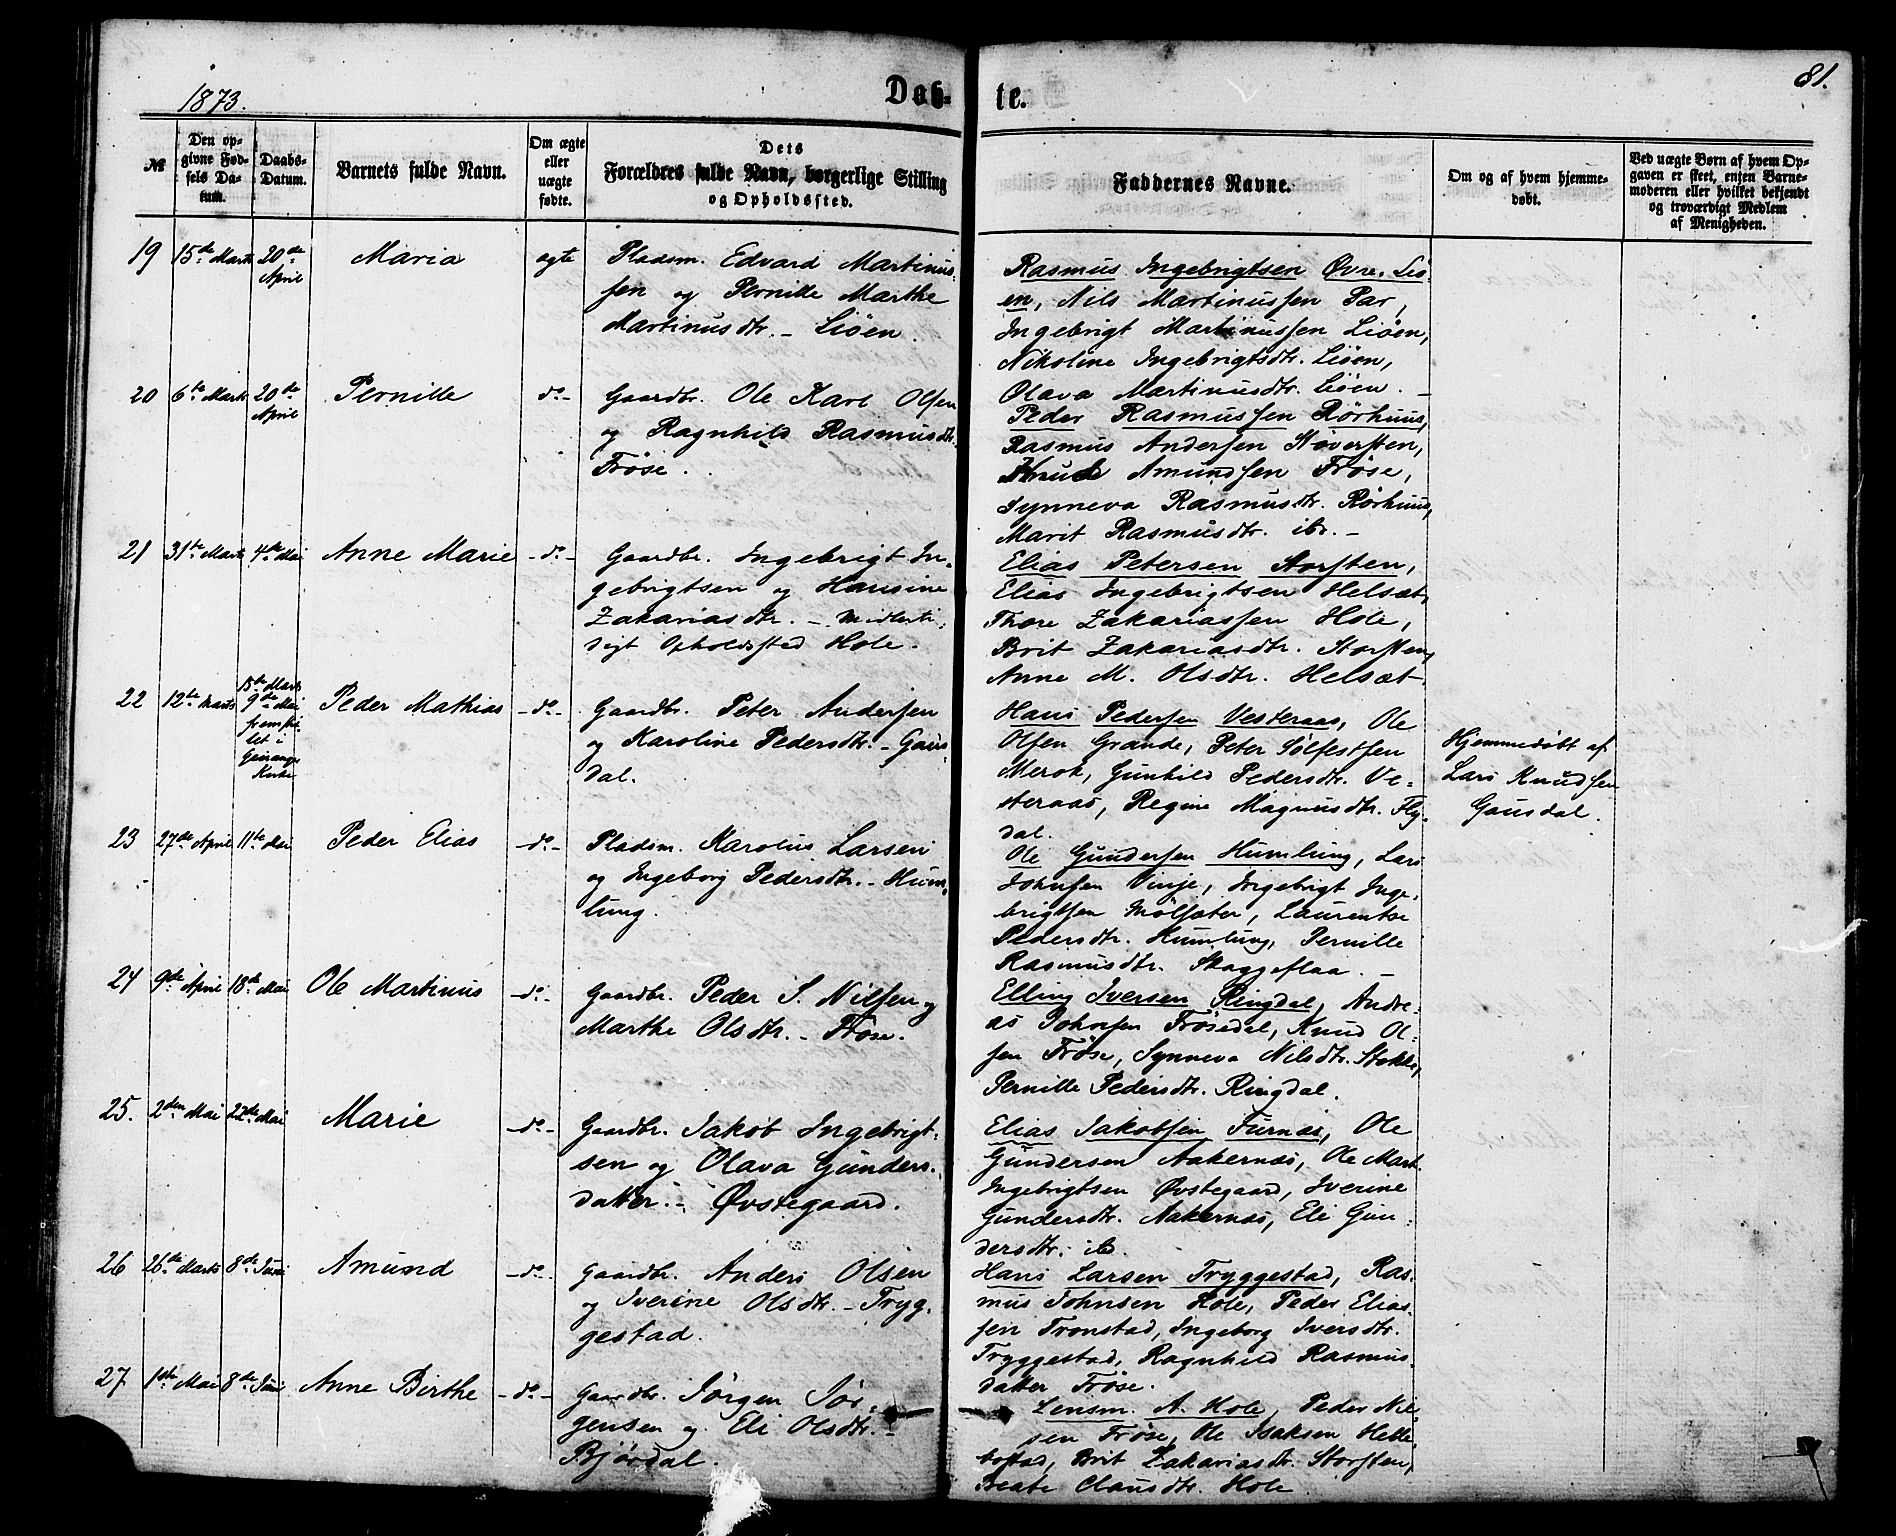 1873.
Døb-
te.
81.
№
Den op-
givne Fød-
sels Da-
tum.
Daabs-
Datum.
Barnets fulde Navn.
Om ægte
eller
uægte
fødte.
Dets
Forældres fulde Navn, borgerlige Stilling
og Opholdssted.
Faddernes Navne.
Om og af hvem hjemme-
døbt.
Ved uægte Børn af hvem Op-
gaven er skeet, enten Barne-
moderen eller hvilket bekjendt
og troværdigt Medlem
af Menigheden.
19 15de Marts 20de April Maria ægte
Pladsm. Edvard Martinus-
sen og Pernille Marthe
Martinusdtr. - Liøen.
Rasmus Ingebrigtsen Øvre-Liø-
en, Nils Martinussen Par,
Ingebrigt Martinussen Liøen,
Nikoline Ingebrigtsdtr. Liøen,
Olava Martinusdtr. Liøen. -
20 6te Marts 20de April Pernille do-
Gaardbr. Ole Karl Olsen
og Ragnhild Rasmusdtr.
Frøse.
Peder Rasmussen Rørhuus,
Rasmus Andersen Støversten,
Knud Amundsen Frøse,
Synneva Rasmusdtr. Rørhuus,
Marit Rasmusdtr. ib. -
21 31te Marts 4de Mai Anne Marie -do-
Gaardbr. Ingebrigt In-
gebrigtsen og Hansine
Zakariasdtr. - Midlerti-
digt Opholdssted Hole.
Elias Petersen Storsten,
Elias Ingebrigtsen Helsæt,
Thore Zakariassen Hole,
Brit Zakariasdtr. Storsten,
Anne M. Olsdtr. Helsæt.
22 12te Marts 15de Marts
9de Mai
fremstil-
let i
Geiranger
Kirke
Peder Mathias -do-
Gaardbr. Peter Andersen
og Karoline Pedersdtr. - Gaus-
dal.
Hans Pedersen Vesteraas, Ole
Olsen Grande, Peter Sølfestsen
Merok, Gunhild Pedersdtr. Ve-
steraas, Regine Magnusdtr. Fly-
dal.
Hjemmedøbt af
Lars Knudsen
Gausdal.
23 27de April 11te Mai Peder Elias -do-
Pladsm. Karolus Larsen
og Ingeborg Pedersdtr. - Hum-
lung.
Ole Gundersen Humlung, Lars
Johnsen Vinje, Ingebrigt Inge-
brigtsen Mølsæter, Laurentse
Pedersdtr. Humlung, Pernille
Rasmusdtr. Skaggeflaa. -
24 9de April 18de Mai Ole Martinus -do-
Gaardbr. Peder S. Nilsen og
Marthe Olsdtr. - Frøse.
Elling Iversen Ringdal, Andre-
as Johnsen Frøsedal, Knud Ol-
sen Frøse, Synneva Nilsdtr. Stokke,
Pernille Pedersdtr. Ringdal.
25. 2den Mai 22de Mai Marie -do-
Gaardbr. Jakob Ingebrigt-
sen og Olava Gunders-
datter. - Øvstegaard.
Elias Jakobsen Furnæs, Ole
Gundersen Aakernæs, Ole Mart.
Ingebrigtsen Øvstegaard, Iverine
Gundersdtr. Aakernæs, Eli Gun-
dersdtr. ib.
26 26de Marts 8de Juni Amund -do-
Gaardbr. Anders Olsen
og Iverine Olsdtr. - Tryg-
gestad.
Hans Larsen Tryggestad, Ras-
mus Johnsen Hole, Peder Elias-
sen Tronstad, Ingeborg Iversdtr.
Tryggestad, Ragnhild Rasmus-
datter Frøse.
27 1ste Mai 8de Juni Anne Birthe -do-
Gaardbr. Jørgen Jør-
gensen og Eli Olsdtr. -
Bjørdal.
Lensm. A. Hole, Peder Nil-
sen Frøse, Ole Isaksen Helle-
bostad, Brit Zakariasdtr. Storsten,
Beate Clausdtr. Hole.